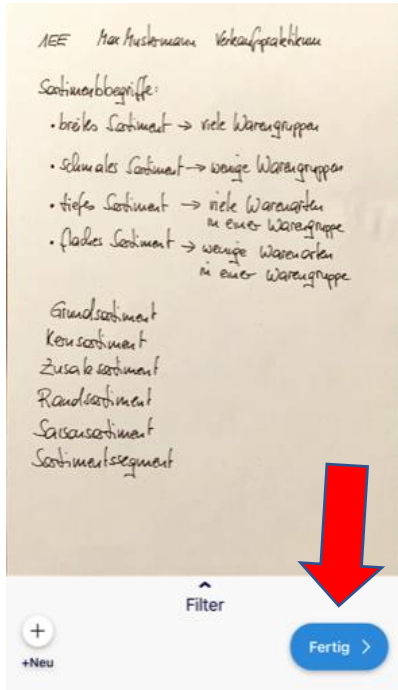 1EE Max Mustermann Verkaufspraktikum
Sortimentsbegriffe:
• breites Sortiment → viele Warengruppen
• schmales Sortiment → wenige Warengruppen
• tiefes Sortiment → viele Warenarten
in einer Warengruppe
• flaches Sortiment → wenige Warenarten
in einer Warengruppe
Grundsortiment
Kernsortiment
Zusatzsortiment
Randsortiment
Saisonsortiment
Sortimentssegment
Filter
+Neu
Fertig >